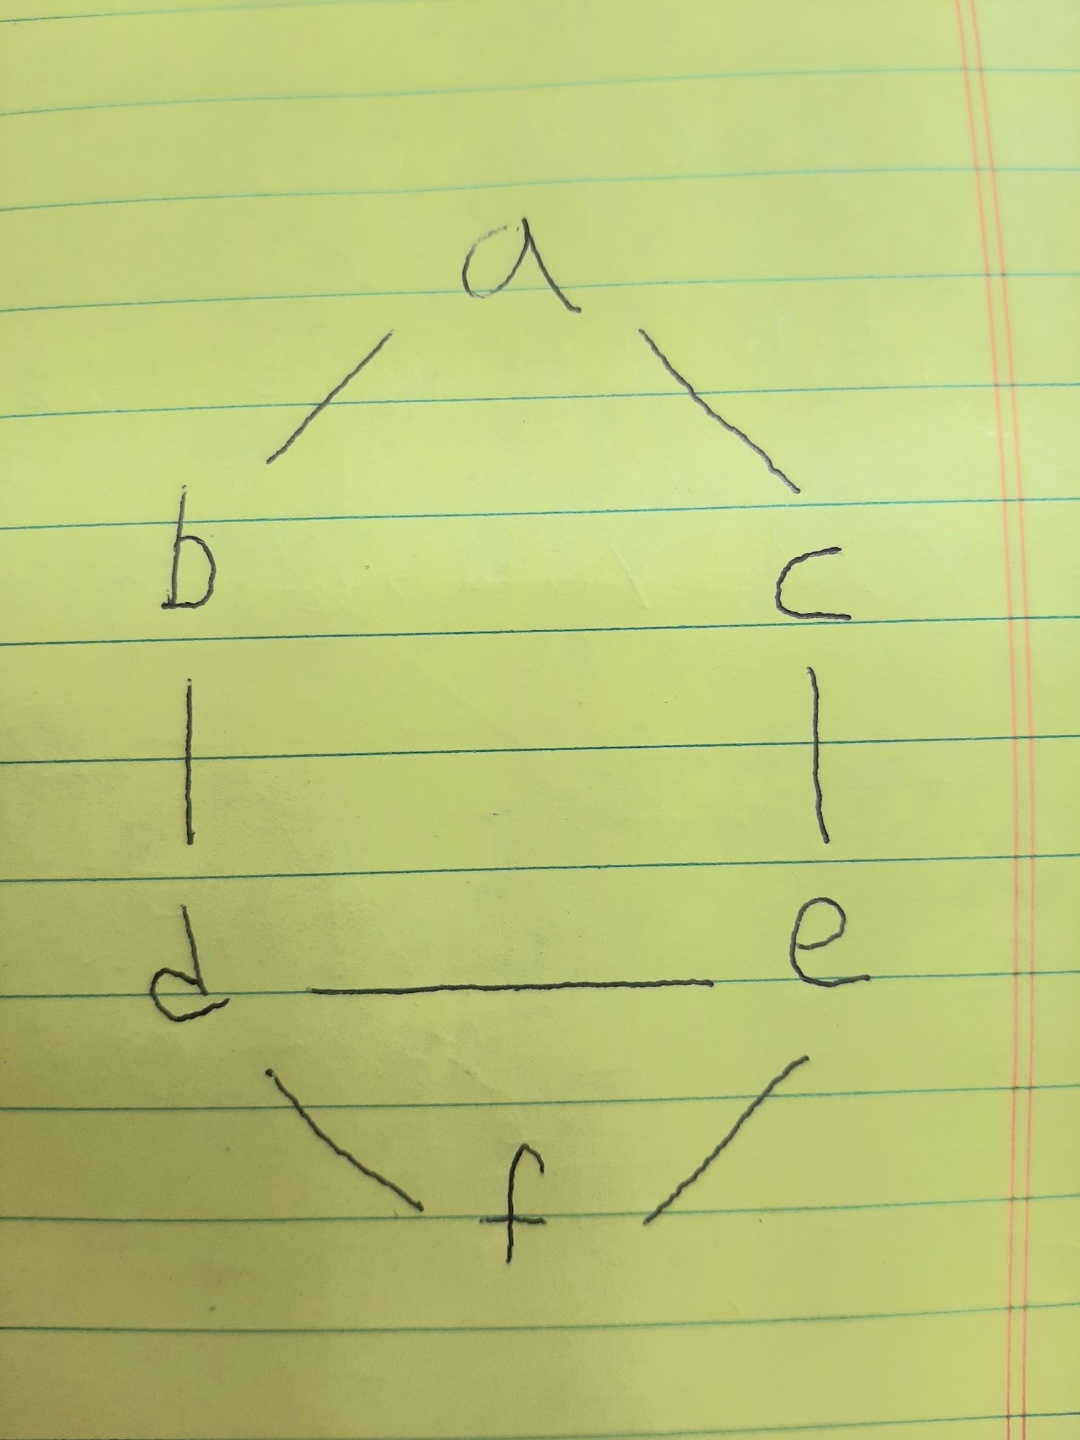 a
b c
d e
f